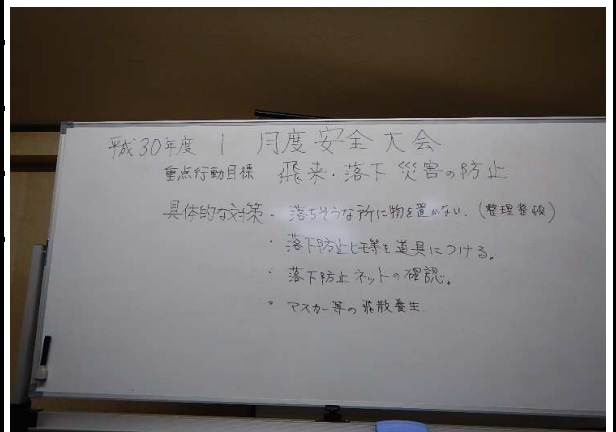 平成30年度 1月度安全大会
重点行動目標 飛来・落下災害の防止
具体的な対策・落ちそうな所に物を置かない。(整理整頓)
・落下防止ヒモ等を道具につける。
・落下防止ネットの確認。
・マスカー等の飛散養生